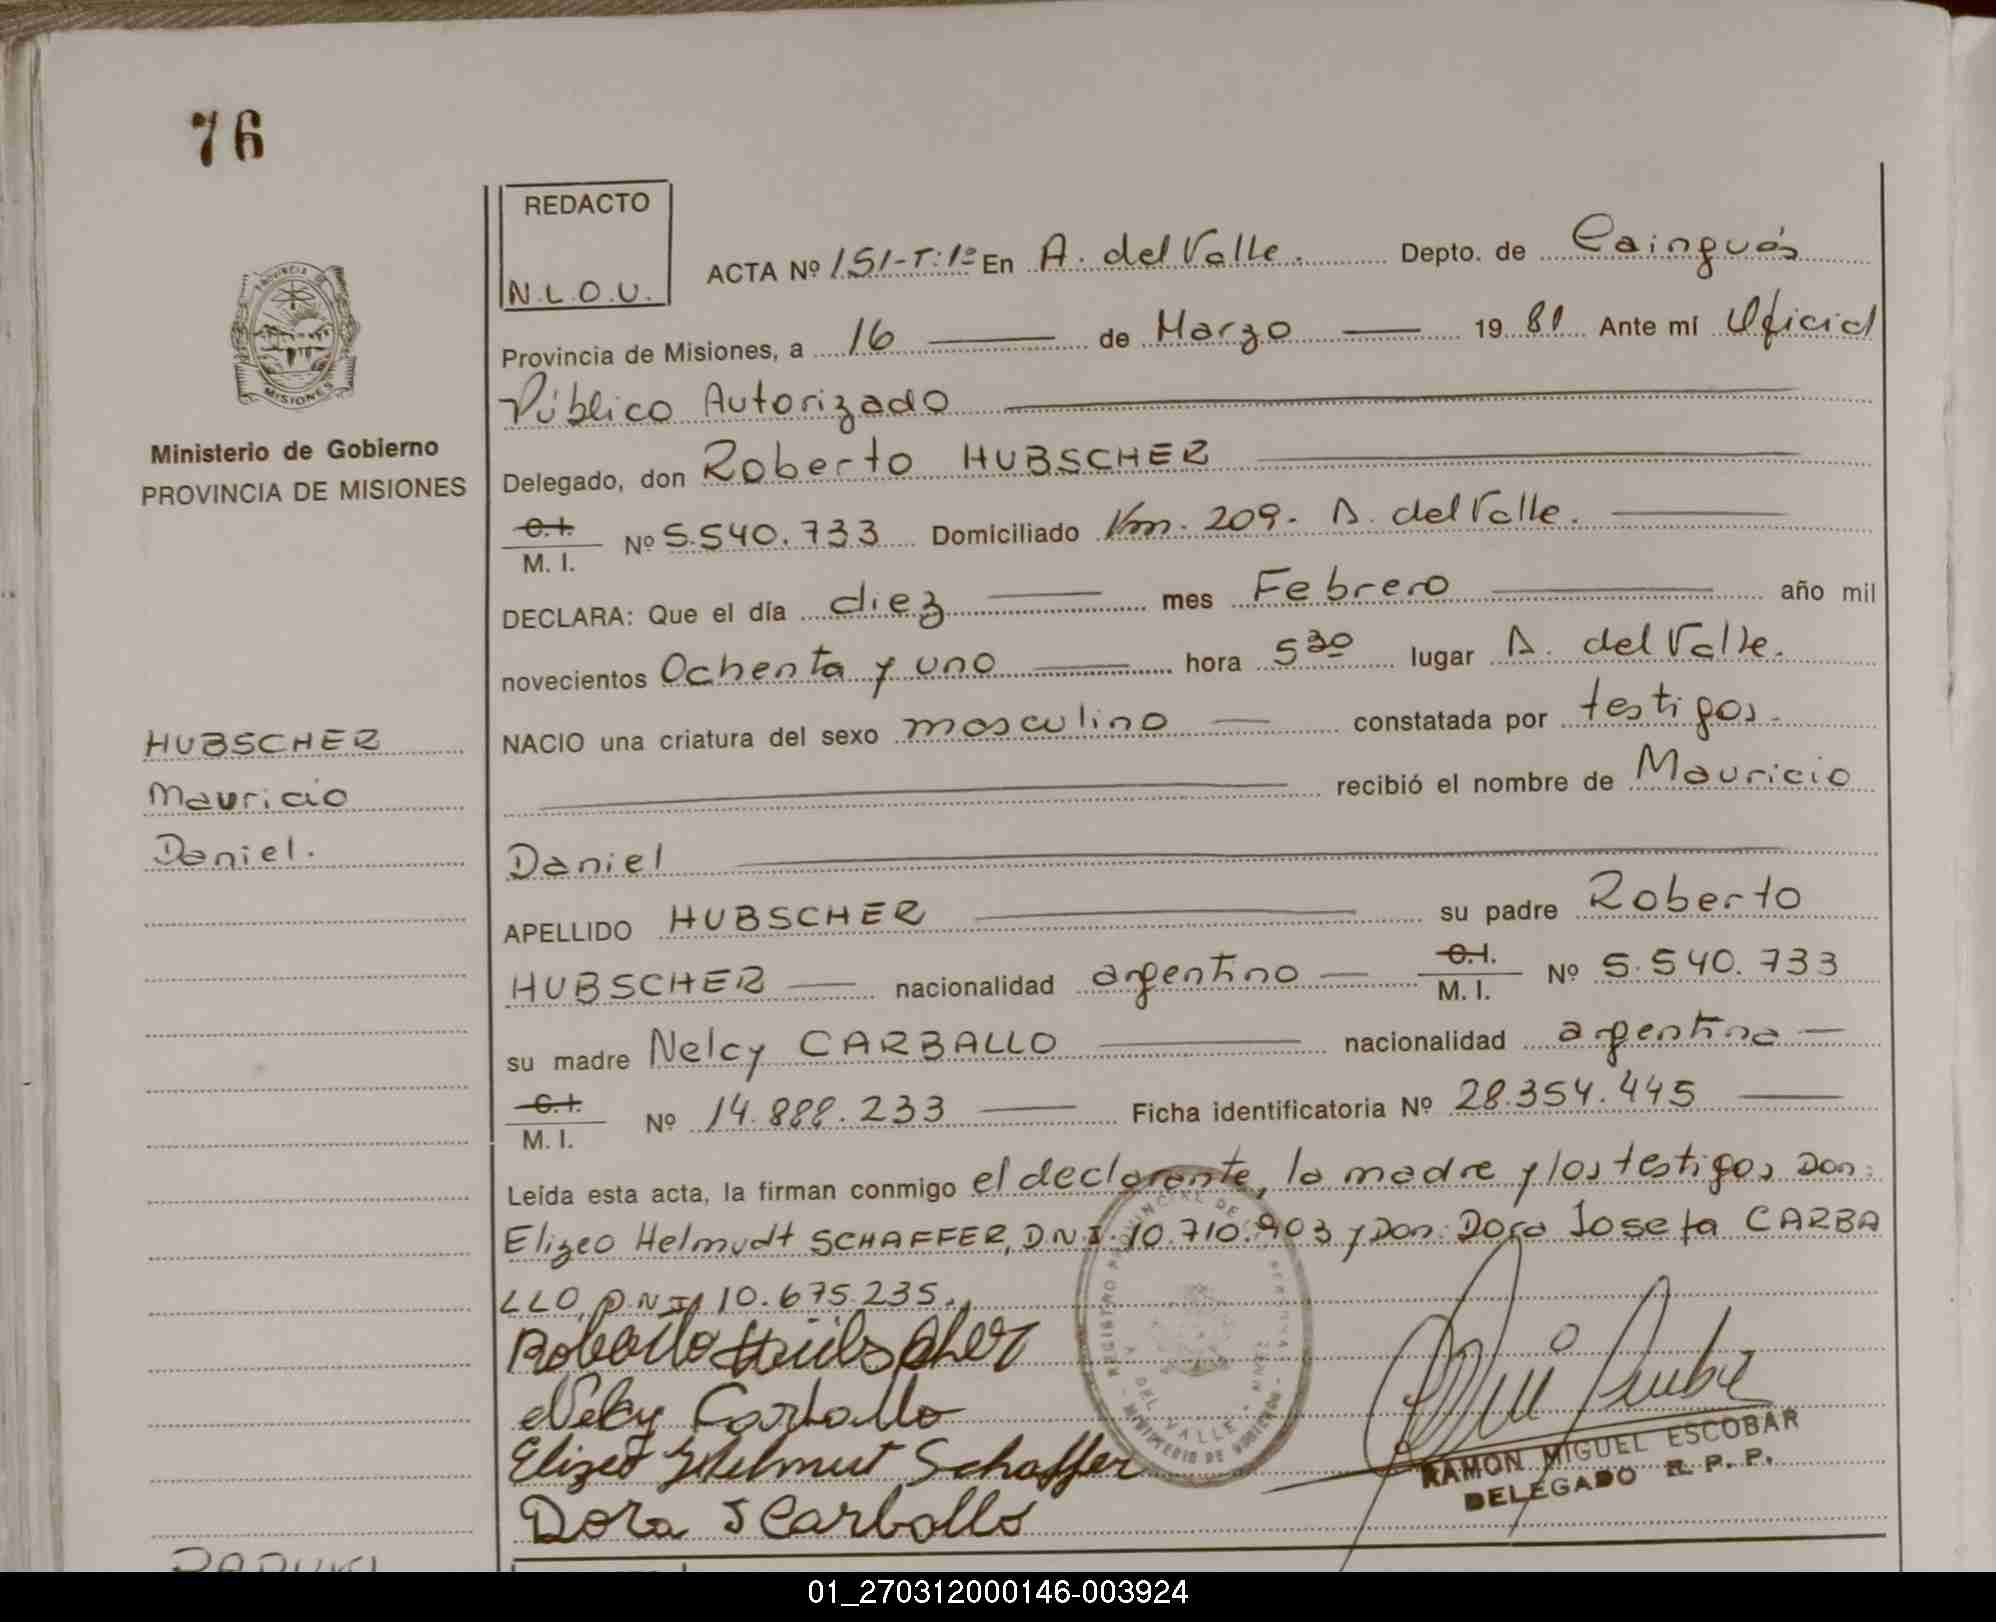 76
REDACTO
N.L.O.U.
ACTA Nº 151-T:1º En A. del Valle. Depto. de Cainguás
Provincia de Misiones, a 16 de Marzo 1981 Ante mí Oficial
Público Autorizado
Delegado, don Roberto HUBSCHER
C.I. M. I. Nº 5.540.733 Domiciliado Km. 209. A. del Valle.
DECLARA: Que el día diez mes Febrero año mil
novecientos Ochenta y uno hora 5 30 lugar A. del Valle.
NACIO una criatura del sexo masculino constatada por testigos.
recibió el nombre de Mauricio
Daniel
APELLIDO HUBSCHER su padre Roberto
HUBSCHER nacionalidad argentino C.I. M. I. Nº 5.540.733
su madre Nelcy CARBALLO nacionalidad argentina
C.I. M. I. Nº 14.888.233 Ficha identificatoria Nº 28.354.445
Leída esta acta, la firman conmigo el declarante, la madre y los testigos Don:
Elizeo Helmudt SCHAFFER, D.N.I. 10.710.903 y Don: Dora Josefa CARBA
LLO, D.N.I. 10.675.235.
Roberto Hübscher
Nelcy Carballo
Elizeo Helmut Schaffer
Dora J Carballo
REGISTRO PROVINCIAL DE
A. DEL VALLE
MINISTERIO DE GOBIERNO
RAMON MIGUEL ESCOBAR
DELEGADO R. P. P.
PROVINCIA DE
MISIONES
Ministerio de Gobierno
PROVINCIA DE MISIONES
HUBSCHER
Mauricio
Daniel.
01_270312000146-003924